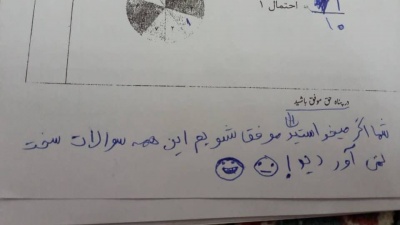 احتمال ۱
۱
۱
۱۰
در پناه حق موفق باشید
شما اگر میخواستید ما موفق شویم این همه سوالات سخت
نمی آوردید!